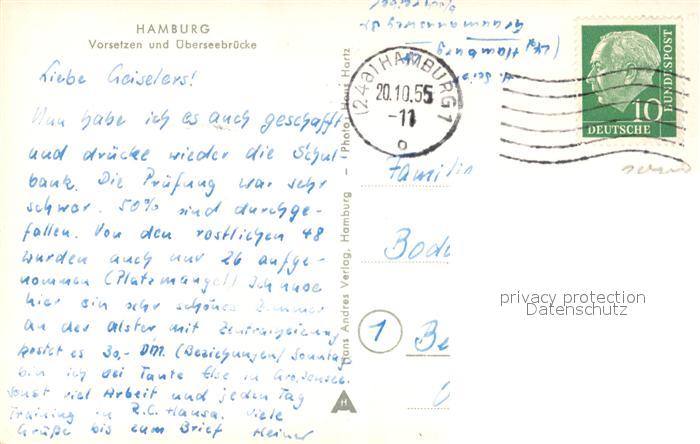 HAMBURG
Vorsetzen und Überseebrücke
Liebe Geiselers!
Nun habe ich es auch geschafft
und drücke wieder die Schul
bank. Die Prüfung war sehr
schwer. 50% sind durchge-
fallen. Von den restlichen 48
wurden auch nur 26 aufge-
nommen (Platzmangel) Ich habe
hier ein sehr schönes Zimmer
an der Alster mit Zentralheizung
kostet es 30,- DM. (Beziehungen) Sonntag
bin ich bei Tante Else in Großensee.
Sonst viel Arbeit und jeden Tag
Training in R.C. Hansa. Viele
Grüße bis zum Brief Heiner
Hans Andres Verlag, Hamburg - Photo: Hans Hartz
H
H. Sei
(24a) Hamburg
Graumannsweg
(24a) HAMBURG 1
20.10.55
-11
o
10
DEUTSCHE
BUNDESPOST
Familie
Bode
1 Be
privacy protection
Datenschutz